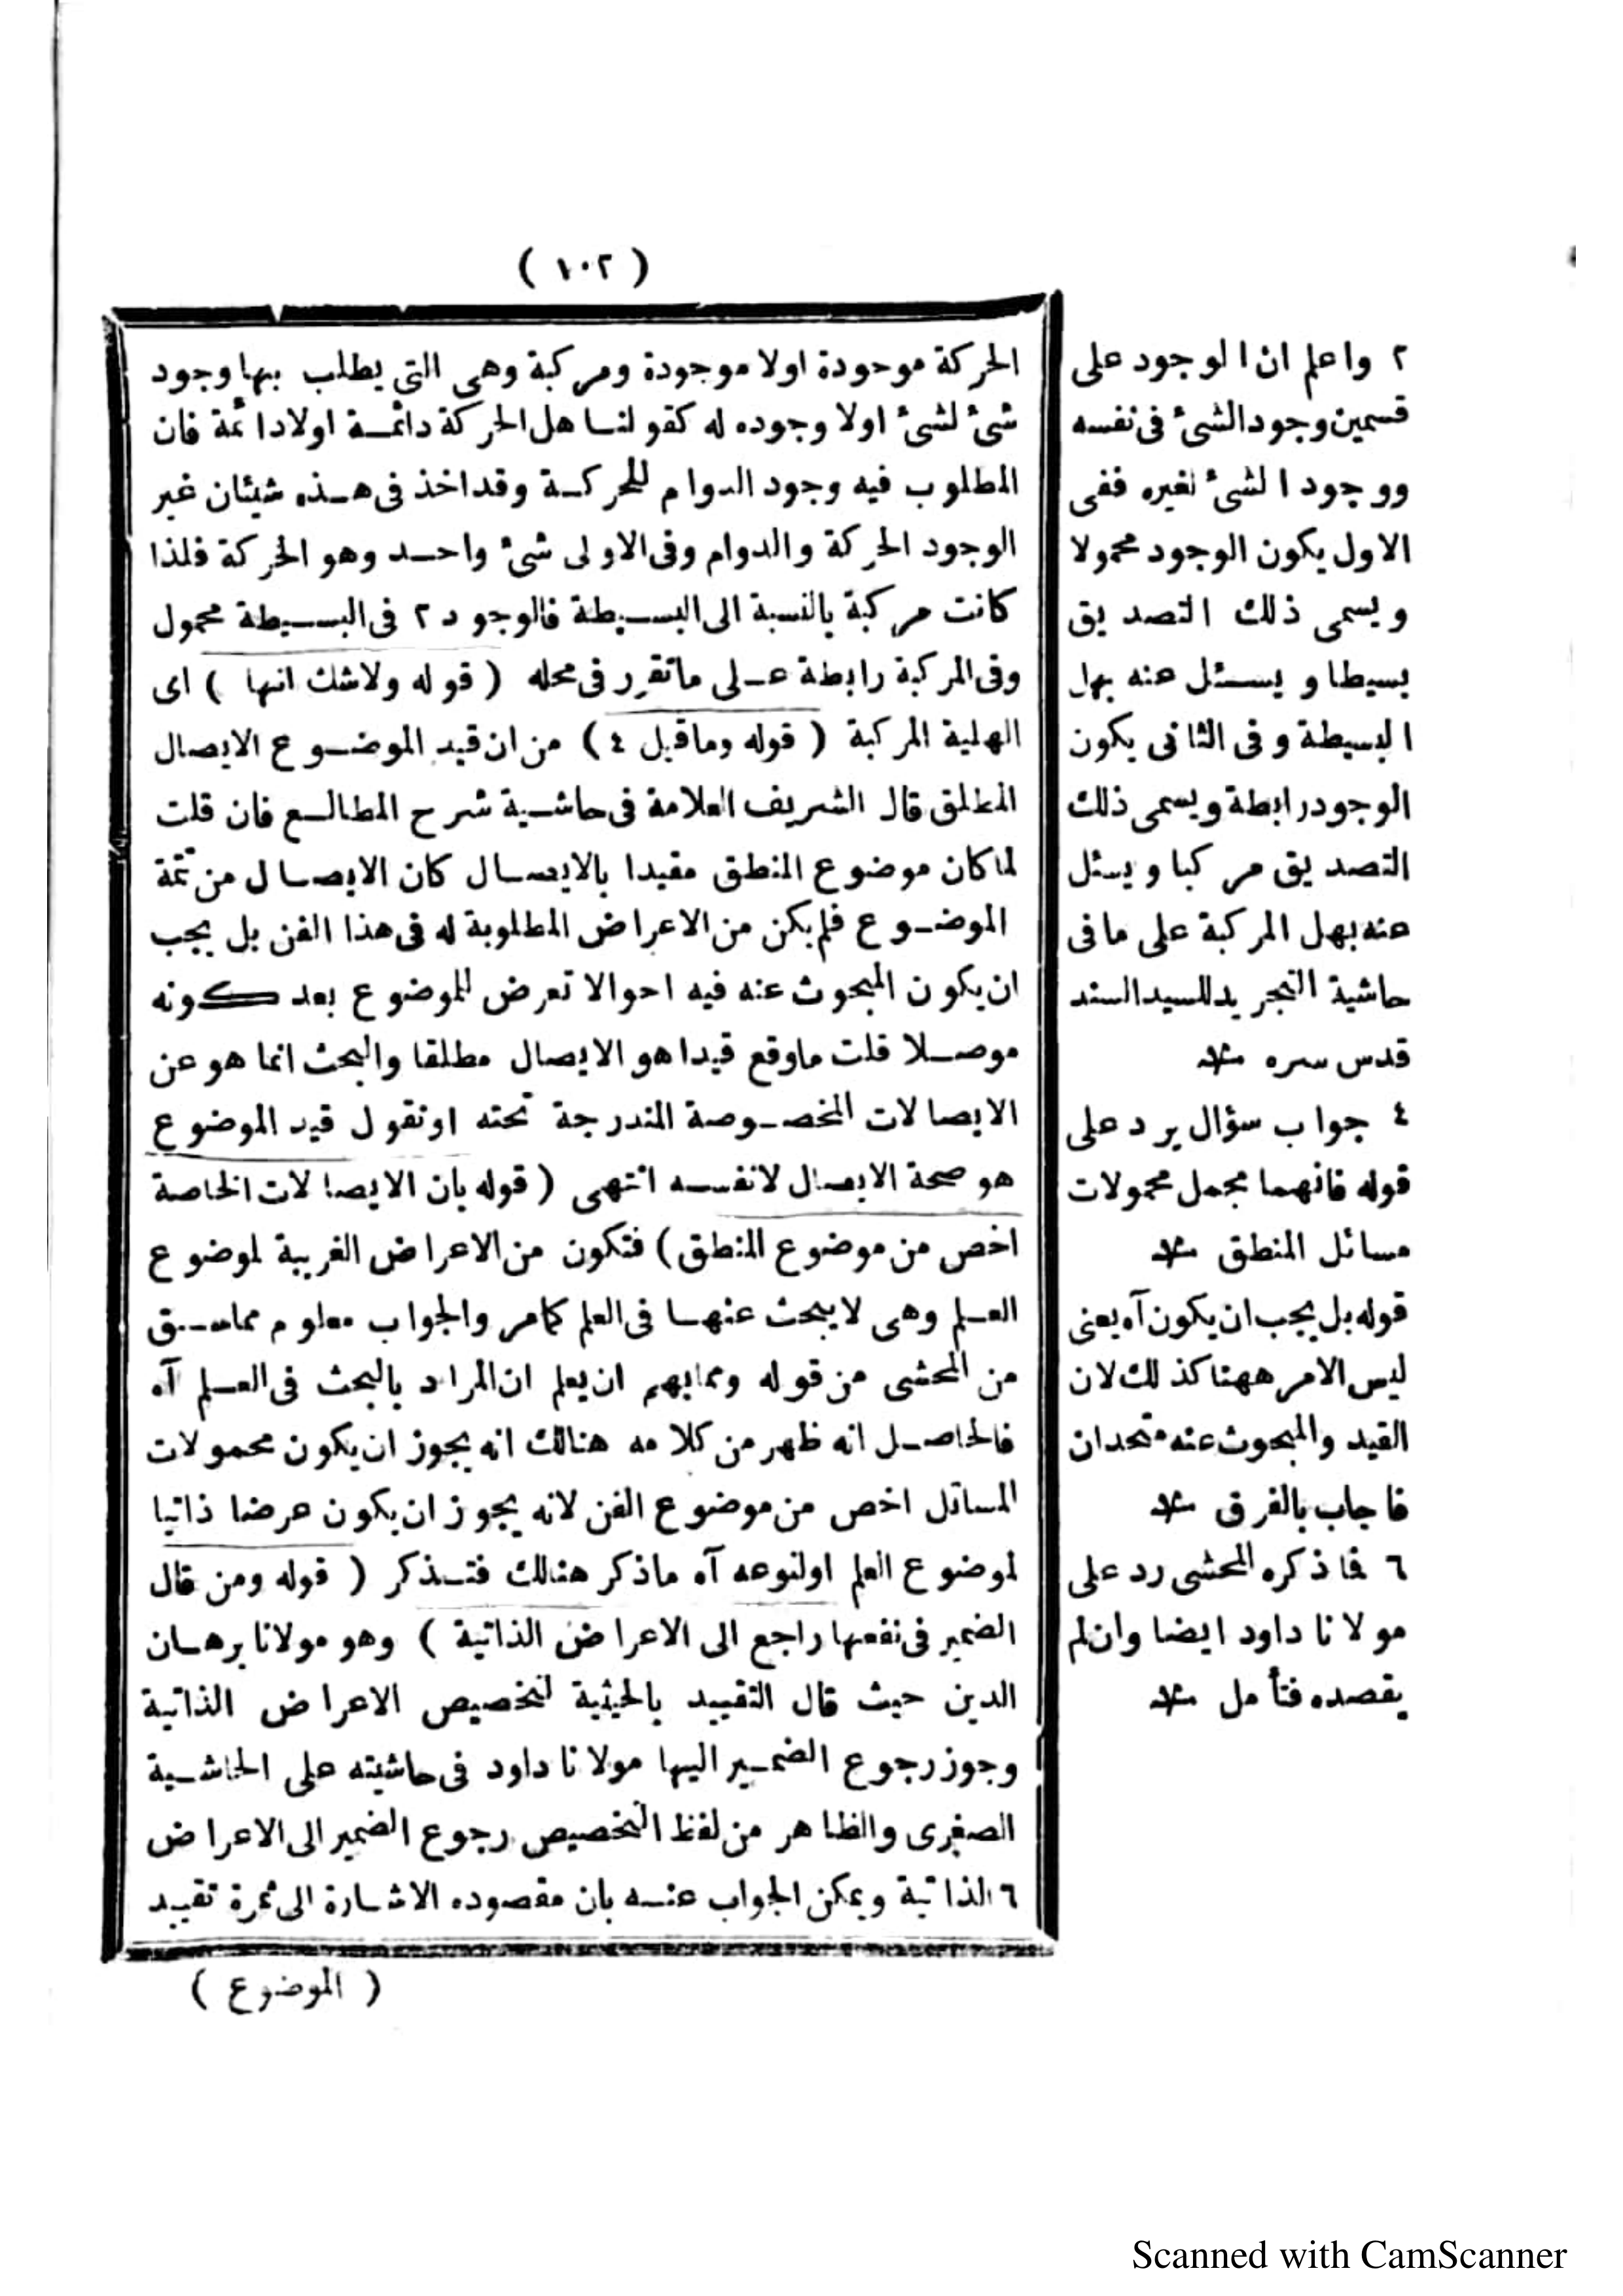 ( ١٠٢ )
الحركة موجودة اولا موجودة ومركبة وهى التى يطلب بها وجود
شئ لشئ اولا وجوده له كقولنا هل الحركة دائمة اولا دائمة فان
المطلوب فيه وجود الدوام للحركة وقد اخذ فى هذه شيئان غير
الوجود الحركة والدوام وفى الاولى شئ واحد وهو الحركة فلذا
كانت مركبة بالنسبة الى البسيطة فالوجود ٢ فى البسيطة محمول
وفى المركبة رابطة على ماتقرر فى محله ( قوله ولاشك انها ) اى
الهلية المركبة ( قوله وماقبل ٤ ) من ان قيد الموضوع الايصال
المطلق قال الشريف العلامة فى حاشية شرح المطالع فان قلت
لماكان موضوع المنطق مقيدا بالايصال كان الايصال من تتمة
الموضوع فلم يكن من الاعراض المطلوبة له فى هذا الفن بل يجب
ان يكون المبحوث عنه فيه احوالا تعرض للموضوع بعد كونه
موصلا قلت ماوقع قيدا هو الايصال مطلقا والبحث انما هو عن
الايصالات المخصوصة المندرجة تحته اونقول قيد الموضوع
هو صحة الايصال لانفسه انتهى ( قوله بان الايصالات الخاصة
اخص من موضوع المنطق ) فتكون من الاعراض الغريبة لموضوع
العلم وهى لايبحث عنها فى العلم كمامر والجواب معلوم مماسبق
من المحشى من قوله ومما يهم ان يعلم ان المراد بالبحث فى العلم آه
فالحاصل انه ظهر من كلامه هنالك انه يجوز ان يكون محمولات
المسائل اخص من موضوع الفن لانه يجوز ان يكون عرضا ذاتيا
لموضوع العلم اولنوعه آه ماذكر هنالك فتذكر ( قوله ومن قال
الضمير فى نفعها راجع الى الاعراض الذاتية ) وهو مولانا برهان
الدين حيث قال التقييد بالحيثية لتخصيص الاعراض الذاتية
وجوز رجوع الضمير اليها مولانا داود فى حاشيته على الحاشية
الصغرى والظاهر من لفظ التخصيص رجوع الضمير الى الاعراض
٦ الذاتية ويمكن الجواب عنه بان مقصوده الاشارة الى ثمرة تقييد
( الموضوع )
٢ واعلم ان الوجود على
قسمين وجود الشئ فى نفسه
ووجود الشئ لغيره ففى
الاول يكون الوجود محمولا
ويسمى ذلك التصديق
بسيطا ويسئل عنه بهل
البسيطة وفى الثانى يكون
الوجود رابطة ويسمى ذلك
التصديق مركبا ويسئل
عنه بهل المركبة على مافى
حاشية التجريد للسيد السند
قدس سره
٤ جواب سؤال يرد على
قوله فانهما مجمل محمولات
مسائل المنطق
قوله بل يجب ان يكون آه يعنى
ليس الامر ههنا كذلك لان
القيد والمبحوث عنه متحدان
فاجاب بالفرق
٦ فاذكره المحشى رد على
مولانا داود ايضا وان لم
يقصده فتأمل
Scanned with CamScanner